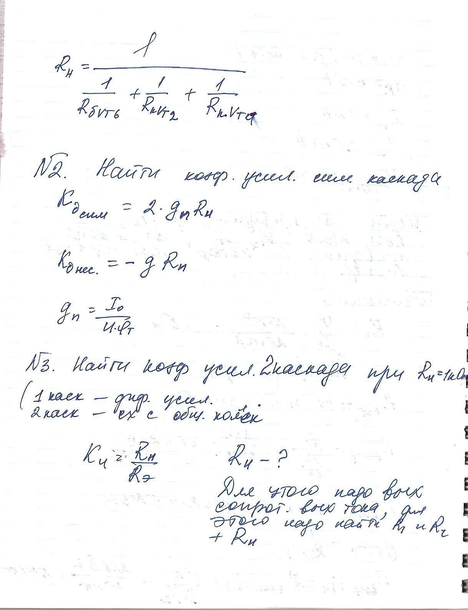 Rн = 1 / (1/RбVT6 + 1/RкVT2 + 1/RкVT4)
№2. Найти коэф. усил. сим. каскада
Kд сим = 2·gпRн
Kд нес. = -gRп
gп = I0/4·φт
№3. Найти коэф усил. 2 каскада при Rн=1кОм
(1 каск – диф. усил.
2 каск – сх с общ.
Kи = Rн/Rэ Rн – ?
Для этого надо вых
сопрот. вых тока, для
этого надо найти R1 и R2
+ Rн